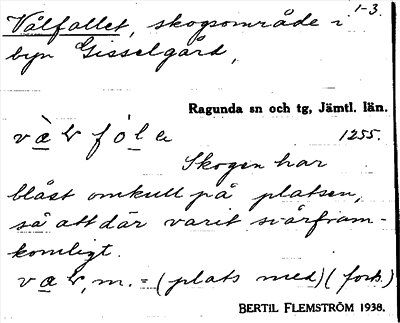 Vålfallet, skogsområde i 1-3.
byn Gisselgård,
Ragunda sn och tg, Jämtl. län.
1255.
Skogen har
blåst omkull på platsen,
så att där varit svårfram-
komligt.
m. = (plats med) (fork.)
BERTIL FLEMSTRÖM 1938.